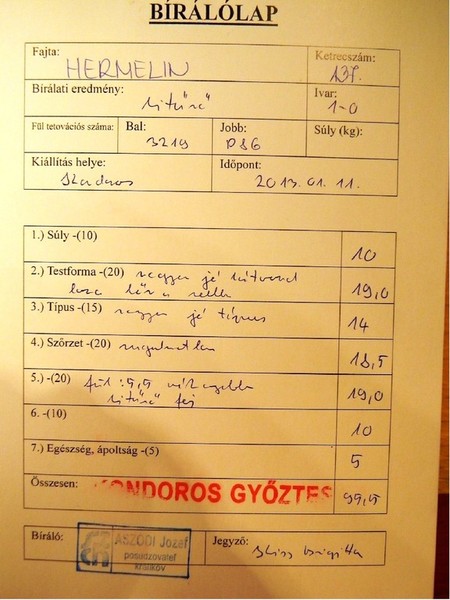 BÍRÁLÓLAP
Fajta: HERMELIN
Ketrecszám: 137.
Bírálati eredmény: kitűnő
Ivar: 1-0
Fül tetovációs száma:
Bal: 3219
Jobb: P86
Súly (kg):
Kiállítás helye: Kondoros
Időpont: 2013.01.11.
1.) Súly -(10) 10
2.) Testforma -(20) nagyon jó
19,0
3.) Típus -(15) nagyon jó típus 14
4.) Szőrzet -(20) 18,5
5.) -(20) fül: 5,5
kitűnő fej 19,0
6. -(10) 10
7.) Egészség, ápoltság -(5) 5
Összesen: KONDOROS GYŐZTES 95,5
Bíráló: ASZÓDI Jozef
posudzovateľ
králikov
Jegyző: Kiss Brigitta